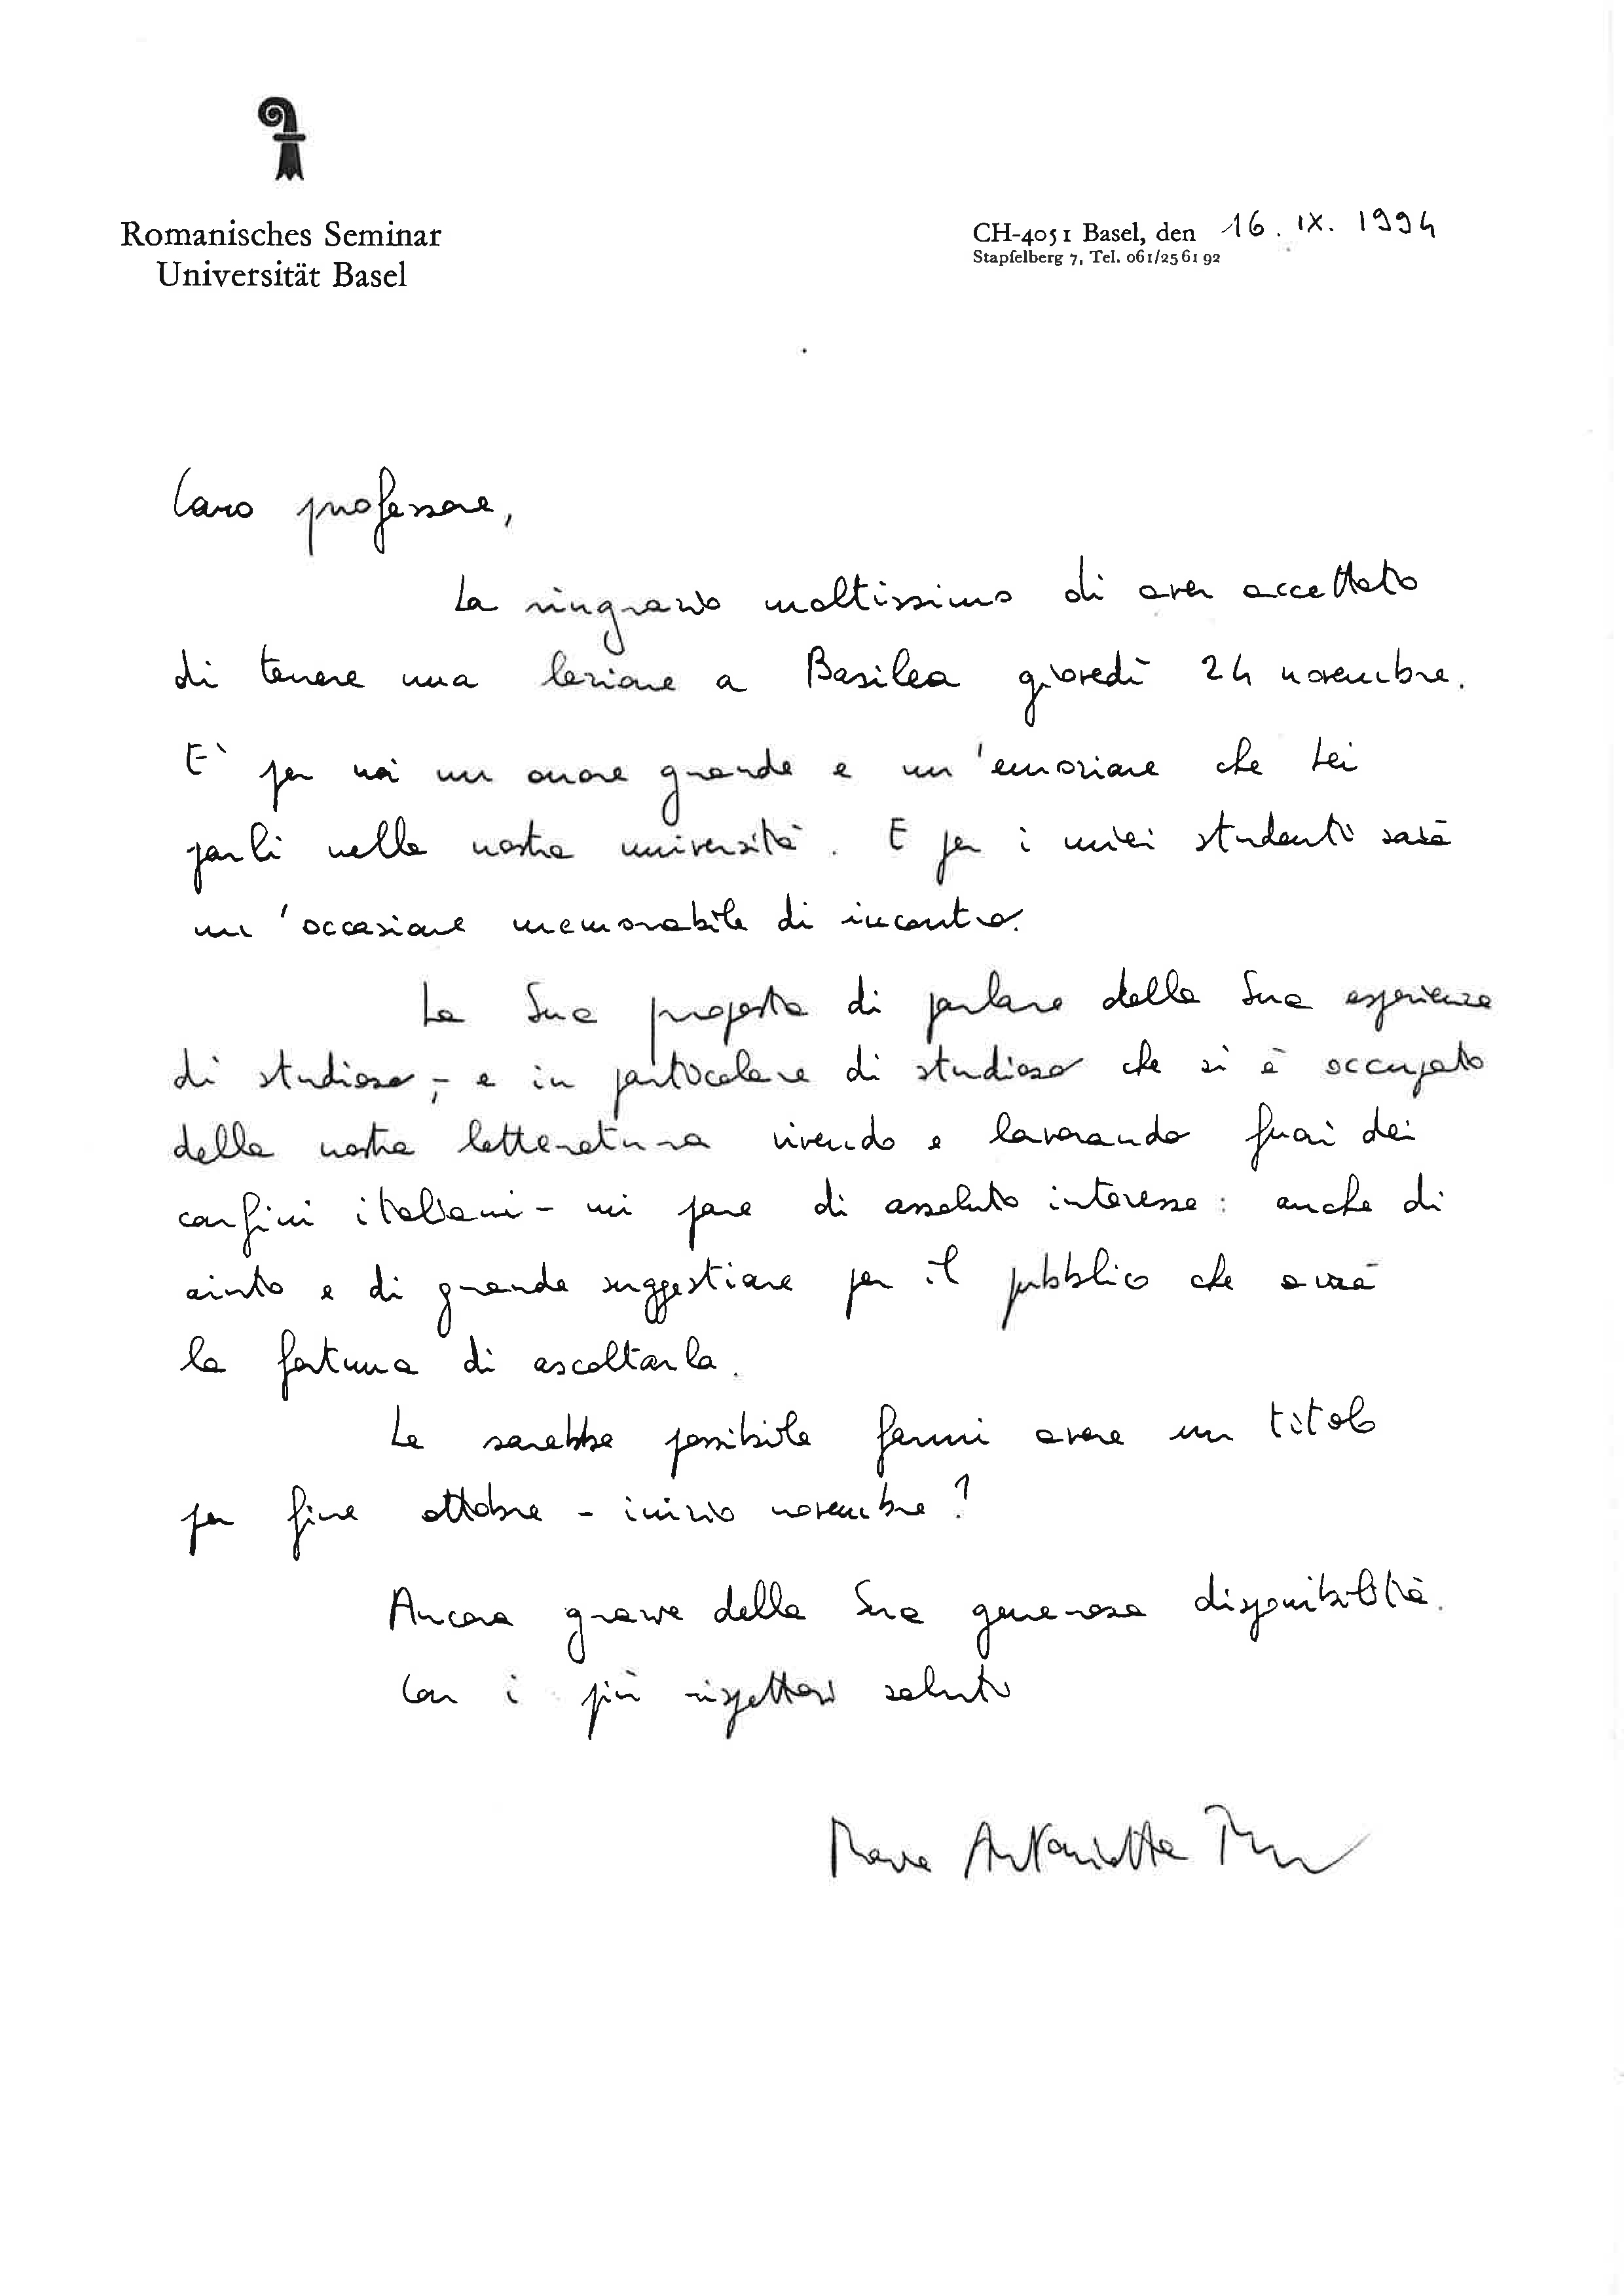 Romanisches Seminar
Universität Basel
CH-4051 Basel, den 16. IX. 1994
Stapfelberg 7, Tel. 061/25 61 92
Caro professore,
La ringrazio moltissimo di aver accettato
di tenere una lezione a Basilea giovedì 24 novembre.
E' per noi un onore grande e un'emozione che Lei
parli nella nostra università. E per i miei studenti sarà
un'occasione memorabile di incontro.
La Sua proposta di parlare della Sua esperienza
di studioso, - e in particolare di studioso che si è occupato
della nostra letteratura vivendo e lavorando fuori dei
confini italiani - mi pare di assoluto interesse: anche di
aiuto e di grande suggestione per il pubblico che avrà
la fortuna di ascoltarla.
Le sarebbe possibile farmi avere un titolo
per fine ottobre - inizio novembre?
Ancora grazie della Sua generosa disponibilità.
Con i più rispettosi saluti
Maria Antonietta